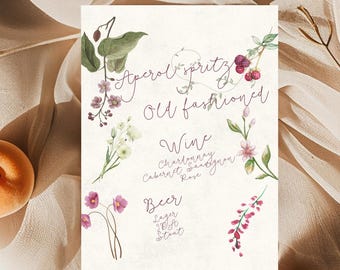 Aperol spritz
Old fashioned
Wine
Chardonnay
Cabernet Sauvignon
Rose
Beer
Lager
IPA
Stout